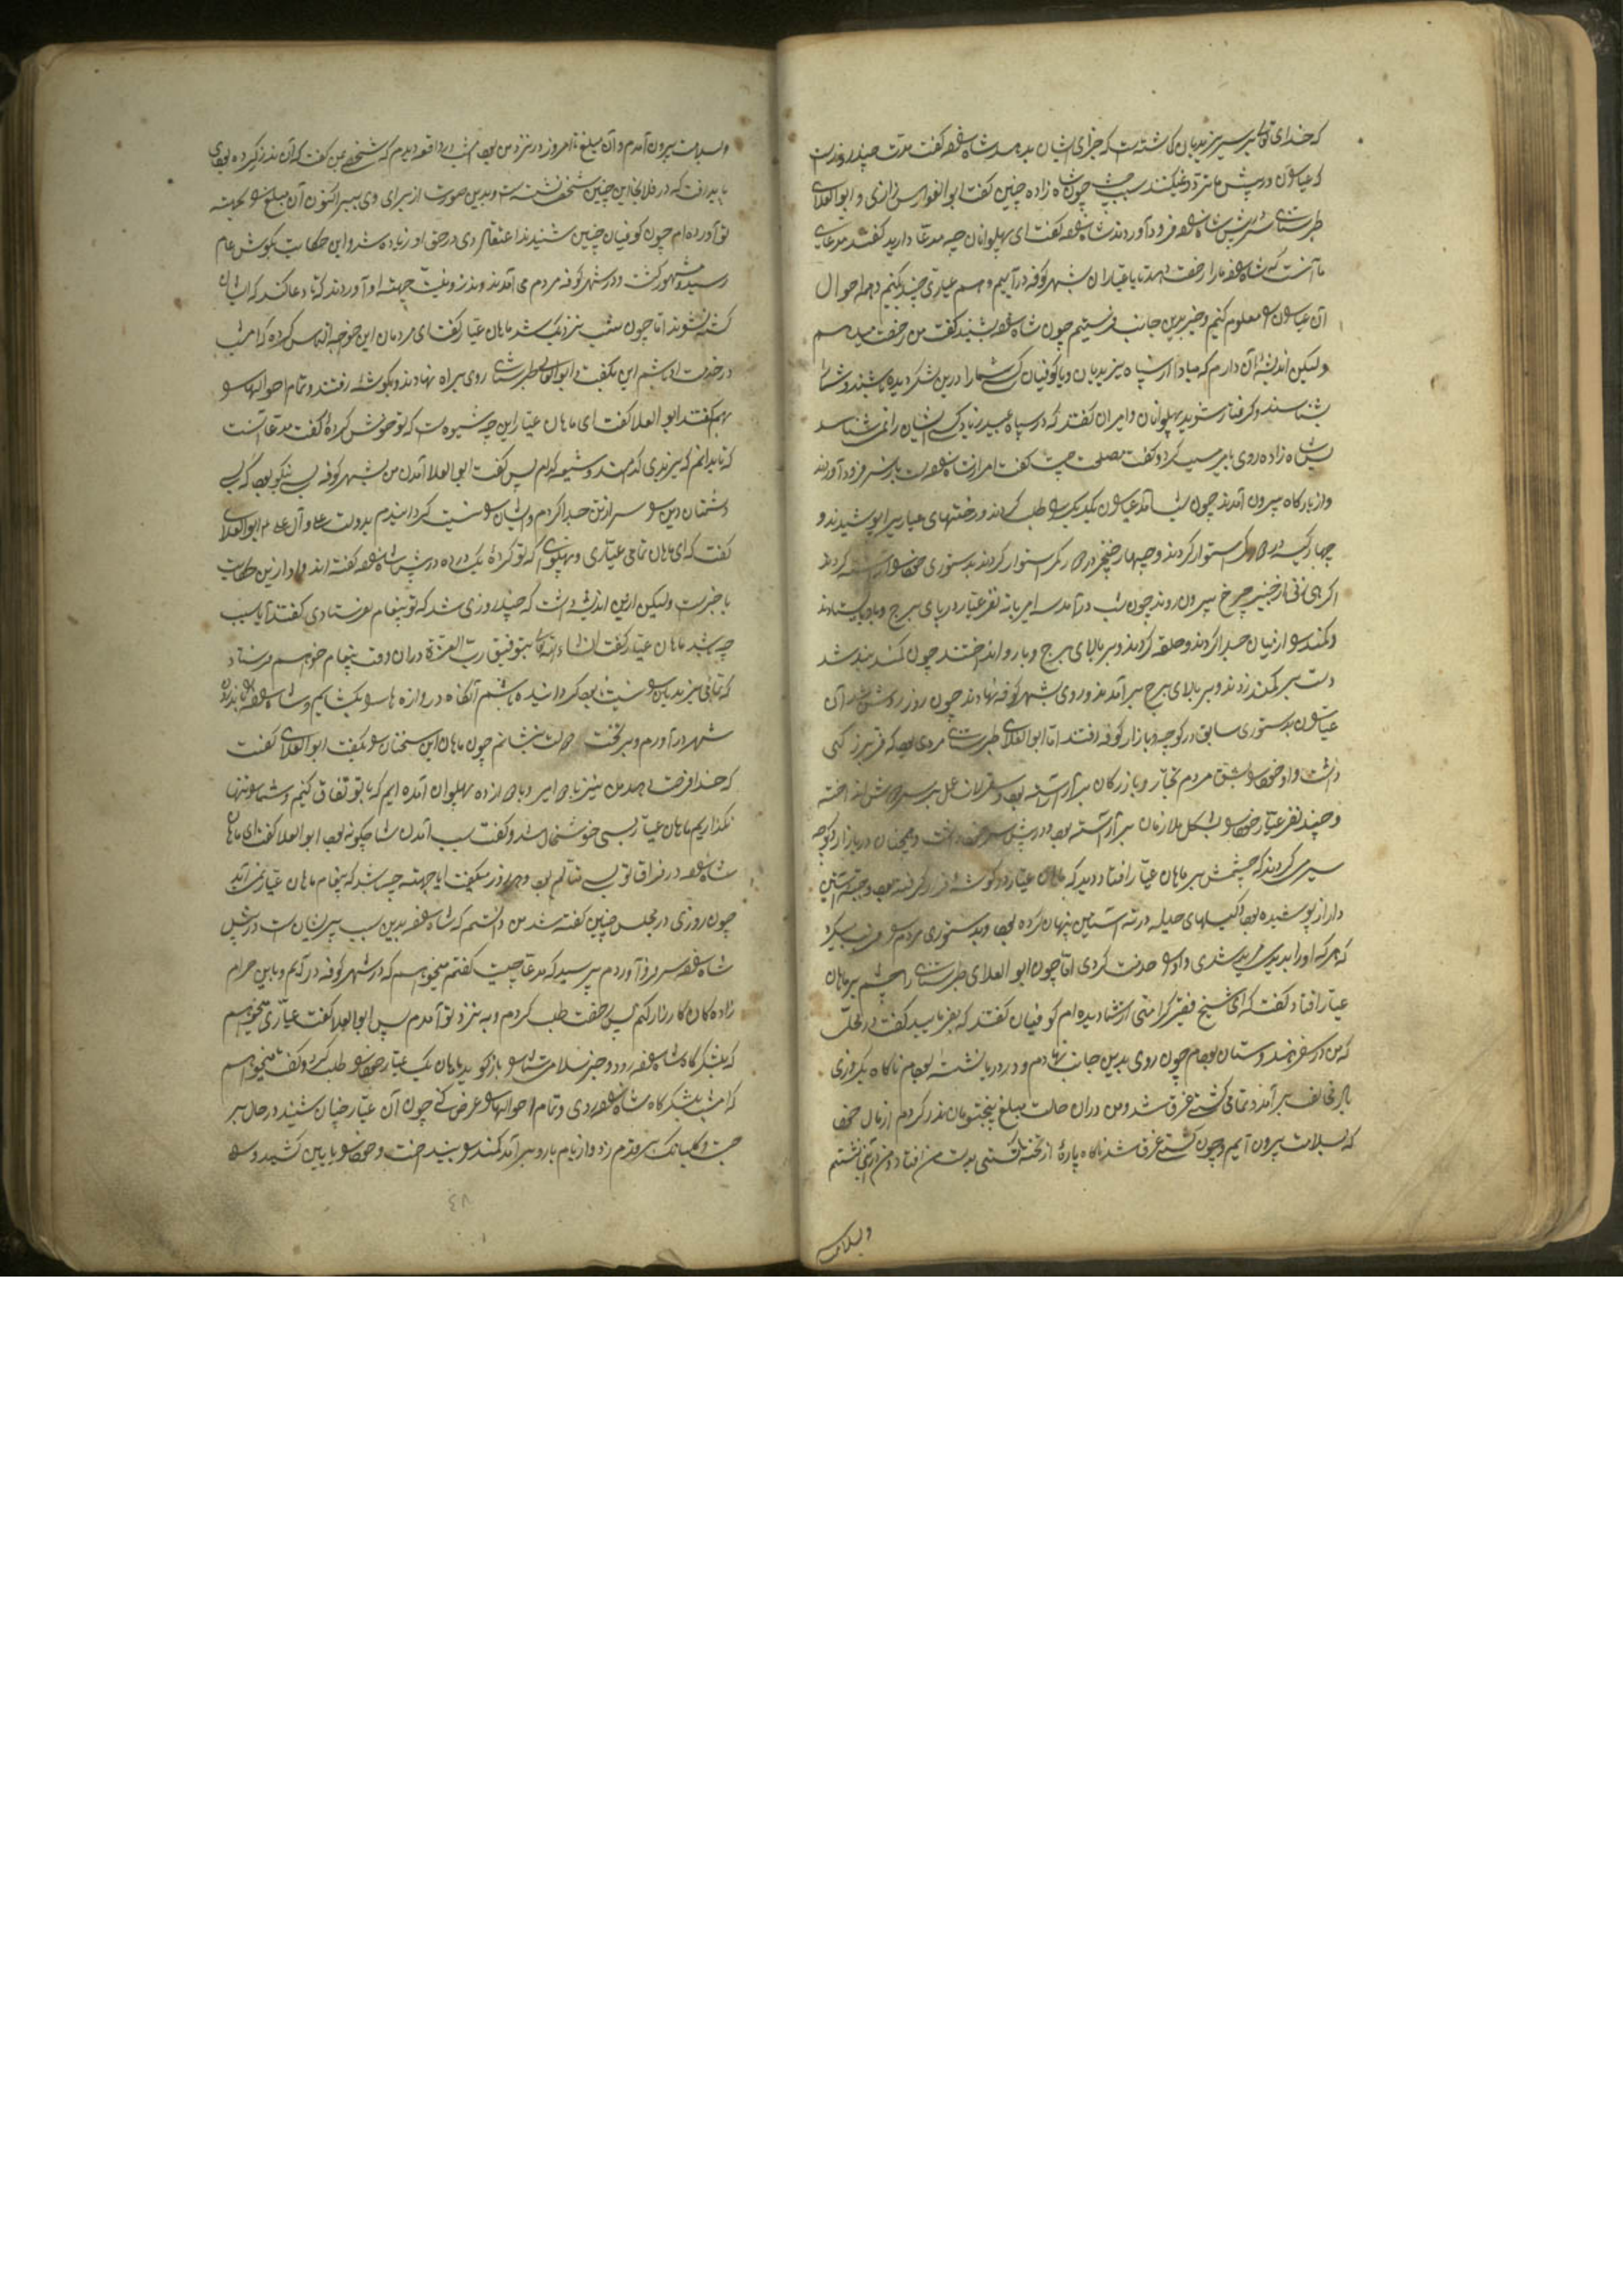 که خدای تعالی بر سر یزیدیان گماشته است که جزای ایشان بدهد شاه صفه گفت مدت چند روزست
که عیاران در پیش ما تردد نمیکنند سبب چیست چون شاه زاده چنین گفت ابو الفوارس رازی و ابو العلای
طبرستانی سر در پیش شاه صفه فرود آوردند شاه صفه گفت ای پهلوانان چه مدعا دارید گفتند مدعای
ما آنست که شاه صفه ما را رخصت دهد تا با عیاران بشهر کوفه درآییم و هم عیاری چند کنیم و هم احوال
آن عیاران را معلوم کنیم و خبر بدین جانب فرستیم چون شاه صفه بشنید گفت من رخصت میدهم
ولیکن اندیشه آن دارم که مبادا از سپاه یزیدیان و یا کوفیان کسی شما را درین لشکر دیده باشند و شما را
بشناسند و گرفتار شوید پهلوانان و امیران گفتند که در سپاه عبید زیاد کسی ایشان را نمی شناسد
پس شاه زاده روی با پیر مسیب کرد و گفت مصلحت چیست گفت امر از شاه صفه است باز سر فرود آوردند
و از بارگاه بیرون آمدند چون شب آمد عیاران یکدیگر را طلب کردند و رختهای عیاری را پوشیدند و
چهار کیسه در کمر استوار کردند و چهار خنجر در کمر استوار کردند بدستوری خود را آراسته کردند
از خنبر چرخ بیرون روند چون شب درآمد سه امیر با نه نفر عیار در پای برج و بارو ایستادند
و کمند را از میان جدا کردند و حلقه کردند و بر بالای برج و بارو انداختند چون کمند بند شد
دست بر کمند زدند و بر بالای برج برآمدند و روی بشهر کوفه نهادند چون روز روشن شد آن
عیاران بدستوری سابق در کوچه و بازار کوفه افتادند اما ابو العلای طبرستانی مردی بود که فر بزرگی
داشت و او خود را بشق مردم تجار و بازرگان برآراسته بود
و چند نفر عیار خود را بشکل ملازمان برآراسته بود و در پیش سر خود داشت و همچنان در بازار و کوچه
سیر می کردند که چشمش بر ماهان عیار افتاد دید که ماهان عیار در گوشه قرار گرفته بود و جبه آستین
دار از پوشیده بود و کیسهای حیله در ته آستین پنهان کرده بود و بدستوری مردم را فریب میکرد
که هر که او را بدیدی مرید شدی و او را خدمت کردی اما چون ابو العلای طبرستانی را چشم بر ماهان
عیار افتاد گفت که ای شیخ فقیر کرامتی از شما دیده ام کوفیان گفتند که بفرمایید گفت در محلی
که من در سفر هندوستان بودم چون روی بدین جانب نهادم و در دریا نشسته بودم ناگاه یکروزی
باد مخالف برآمد و تمامی کشتی غرق شد و من دران حالت مبلغ پنج تومان نذر کردم از مال خود
که بسلامت بیرون آیم و چون کشتی غرق شد ناگاه پاره از تخته کشتی بدست من افتاد و من بر آن نشستم
وبسلامت
وبسلامت بیرون آمدم و آن مبلغ تا امروز در نزد من بود امشب در واقعه دیدم که شخصی بمن گفت که آن نذر که کرده بودی
باید رفت که در فلان جا این چنین شخصی نشسته است و بدین صورت از برای وی ببر اکنون آن مبلغ را بجهته
تو آورده ام چون کوفیان چنین شنیدند اعتقاد وی در حق او زیاده شد و این حکایت بگوش عام
رسید و مشهور گشت و در شهر کوفه مردم می آمدند و نذر و نیت جهته او آوردند که تا دعا کند که ایشان
کشته نشوند اما چون شب نزدیک شد ماهان عیار گفت ای مردمان این خواجه التماس کرده که امشب
در خدمت او باشم این بگفت و ابو العلای طبرستانی روی براه نهادند و بگوشه رفتند و تمام احوالها را
بهم گفتند ابو العلا گفت ای ماهان عیار این چه شیوه است که تو خوش کرده گفت مدعا آنست
که تا بدانم که یزیدی کدامند و شیعه کدام پس گفت ابو العلا آمدن من بشهر کوفه بسی نیکو بود که بسی
دشمنان دین را سر از تن جدا کردم و ایشان را نیست گردانیدم بدولت علی و آل علی ع م ابو العلای
گفت که ای ماهان تمامی عیاری و پهلوی که تو کرده یک در ده در پیش شاه صفه گفته اند و او ازین حکایت
با خبرست ولیکن ازین اندیشه داشت که چند روزی شد که تو پیغام نفرستادی گفتند آیا سبب
چه شد ماهان عیار گفت ان شاء الله تعالی بتوفیق رب العزة دران وقت پیغام خواهم فرستاد
که تمامی یزیدیان را نیست و نابود گردانیده باشم آنگاه دروازه ها را بگشایم و شاه صفه را بدرون
شهر درآورم و بر تخت دولت بنشانم چون ماهان این سخنان را بگفت ابو العلای گفت
که خدا فرصت دهد من نیز با دو امیر و با دوازده پهلوان آمده ایم که با تو اتفاق کنیم و شما را تنها
نگذاریم ماهان عیار بسی خوشحال شد و گفت سبب آمدن شما چگونه بود ابو العلا گفت ای ماهان
شاه صفه در فراق تو بسی متألم بود و هر روز میگفت آیا جهته چه شد که پیغام ماهان عیار نمی آید
چون روزی در مجلس چنین گفته شد من دانستم که شاه صفه بدین سبب پریشان است در پیش
شاه صفه سر فرو آوردم پرسید که مدعا چیست گفتم میخواهم که در شهر کوفه درآیم و با این حرام
زاده کان کارزار کنم پس رخصت طلب کردم و به نزد تو آمدم پس ابو العلا گفت عیاری میخواهم
که بلشکرگاه شاه صفه رود و خبر سلامت شما را بازگوید ماهان یک عیار خود را طلب کرد و گفت میخواهم
که امشب بلشکرگاه شاه صفه روی و تمام احوالها را عرض کنی چون آن عیار چنان شنید در حال بر
جست و گلبانگ بر قدم زد و از بام بارو برآمد کمند را بینداخت و خود را بپایین کشید و سه
٤٨